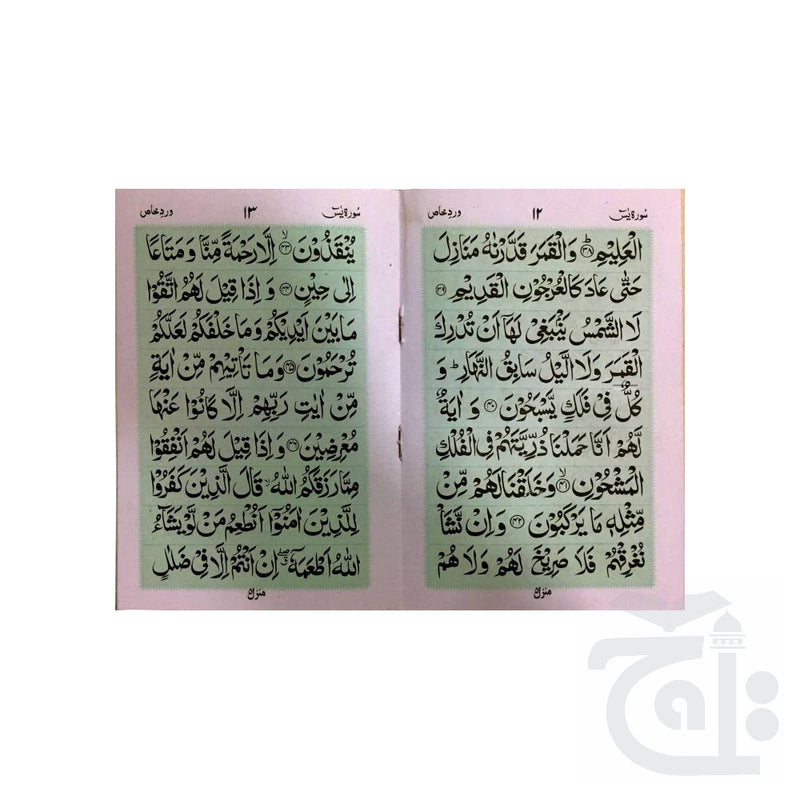 سُورة یٰسٓ ١٢ وردِ خاص
الْعَلِیْمِ ؕ ﴿۳۸﴾ وَالْقَمَرَ قَدَّرْنٰهُ مَنَازِلَ
حَتّٰی عَادَ کَالْعُرْجُوْنِ الْقَدِیْمِ ﴿۳۹﴾
لَا الشَّمْسُ یَنْۢبَغِیْ لَهَاۤ اَنْ تُدْرِکَ
الْقَمَرَ وَلَا الَّیْلُ سَابِقُ النَّهَارِ ؕ وَ
کُلٌّ فِیْ فَلَکٍ یَّسْبَحُوْنَ ﴿۴۰﴾ وَ اٰیَةٌ
لَّهُمْ اَنَّا حَمَلْنَا ذُرِّیَّتَهُمْ فِی الْفُلْکِ
الْمَشْحُوْنِ ﴿۴۱﴾ۙ وَخَلَقْنَا لَهُمْ مِّنْ
مِّثْلِهٖ مَا یَرْکَبُوْنَ ﴿۴۲﴾ وَاِنْ نَّشَاْ
نُغْرِقْهُمْ فَلَا صَرِیْخَ لَهُمْ وَلَا هُمْ
منزل ۵
سُورة یٰسٓ ١٣ وردِ خاص
یُنْقَذُوْنَ ﴿۴۳﴾ۙ اِلَّا رَحْمَةً مِّنَّا وَ مَتَاعًا
اِلٰی حِیْنٍ ﴿۴۴﴾ وَ اِذَا قِیْلَ لَهُمُ اتَّقُوْا
مَا بَیْنَ اَیْدِیْکُمْ وَمَا خَلْفَکُمْ لَعَلَّکُمْ
تُرْحَمُوْنَ ﴿۴۵﴾ وَمَا تَاْتِیْهِمْ مِّنْ اٰیَةٍ
مِّنْ اٰیٰتِ رَبِّهِمْ اِلَّا کَانُوْا عَنْهَا
مُعْرِضِیْنَ ﴿۴۶﴾ وَ اِذَا قِیْلَ لَهُمْ اَنْفِقُوْا
مِمَّا رَزَقَکُمُ اللّٰهُ ۙ قَالَ الَّذِیْنَ کَفَرُوْا
لِلَّذِیْنَ اٰمَنُوْۤا اَنُطْعِمُ مَنْ لَّوْ یَشَآءُ
اللّٰهُ اَطْعَمَهٗۤ ۖ اِنْ اَنْتُمْ اِلَّا فِیْ ضَلٰلٍ
منزل ۵